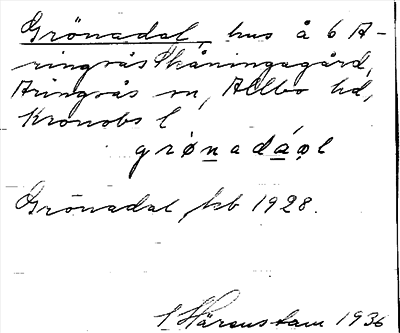 Grönadal, hus å 6 A-
ringsås Skåningagård,
Aringsås sn, Allbo hd,
Kronobs l
grønadáo̩l
Grönadal, jkb 1928.
S Härenstam 1936